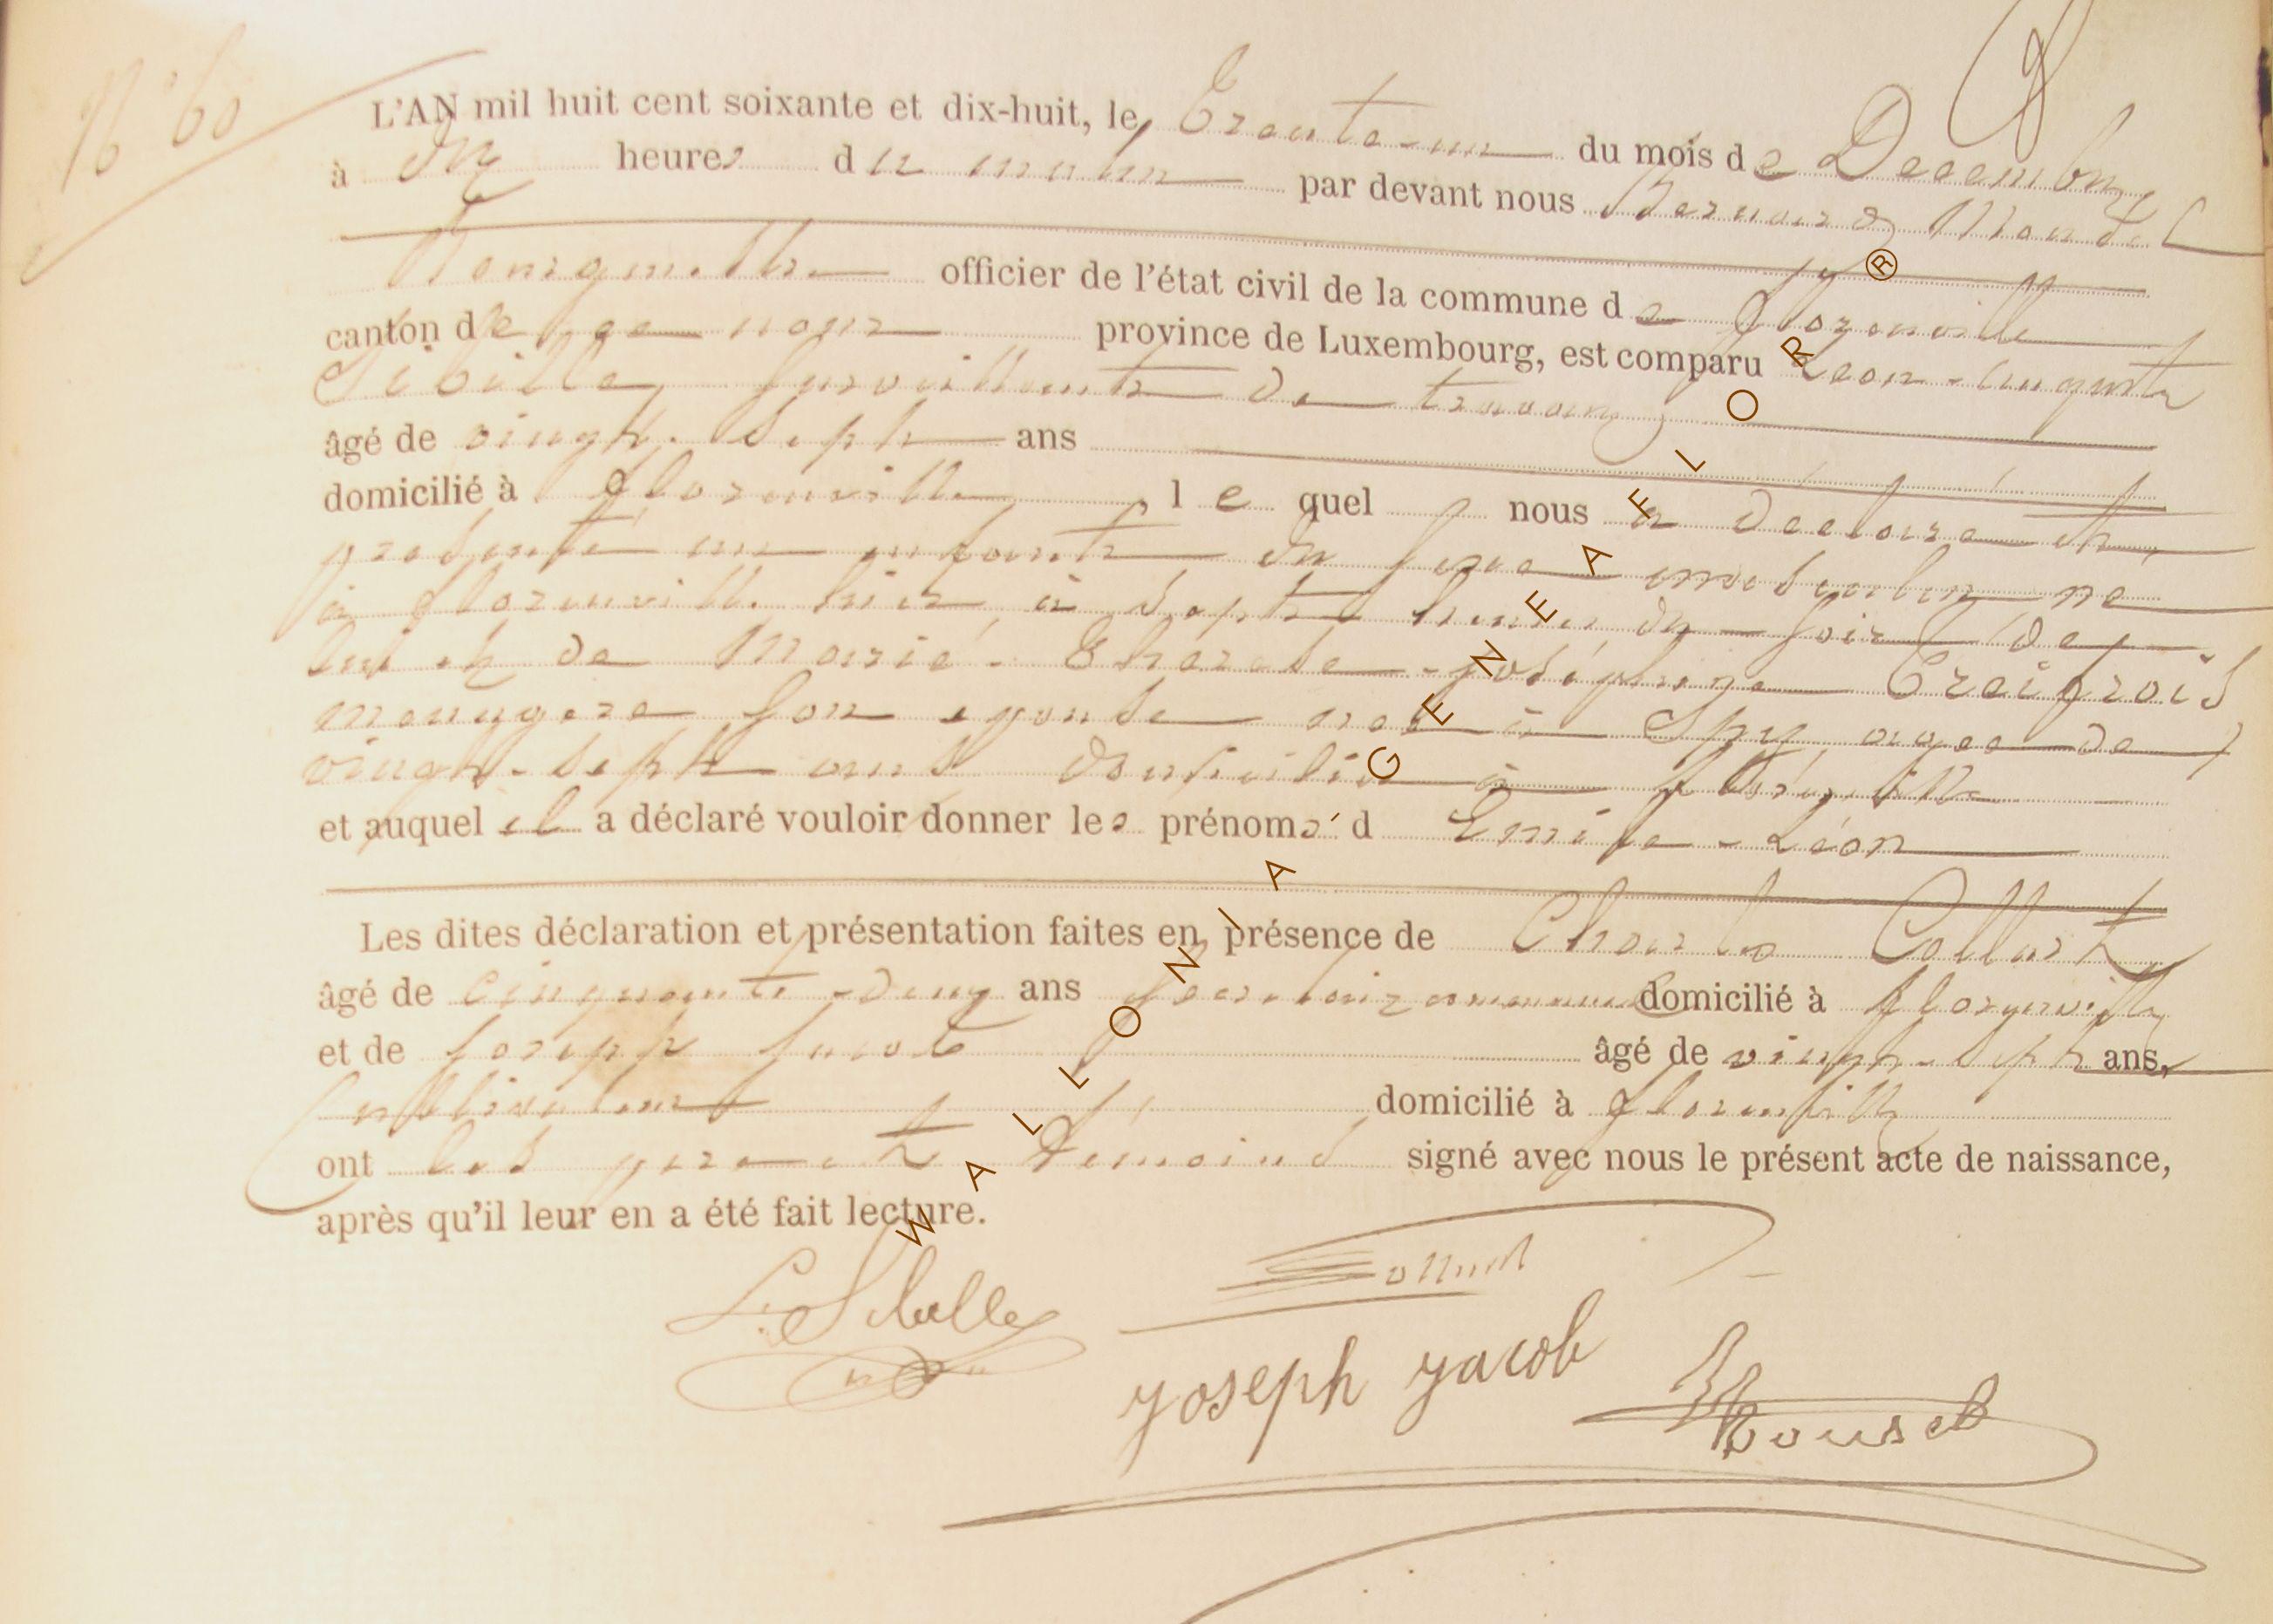 N° 60
L'AN mil huit cent soixante et dix-huit, le Trente-un du mois de Decembre
à dix heures du matin par devant nous Bernard
Bourgmestre officier de l'état civil de la commune de Florenville
canton de ce nom province de Luxembourg, est comparu Leon-Auguste
Sibille, surveillant de travaux
âgé de vingt-sept ans
domicilié à Florenville, lequel nous a déclaré et
presenté un enfant du sexe masculin né
à Florenville hier à sept heures du soir de
lui et de Marie-Therese-josephine Treigrois
menagere son epouse nee à Spy, agee de
vingt-sept ans domiciliee à Florenville
et auquel il a déclaré vouloir donner les prénoms d Emile-Léon
Les dites déclaration et présentation faites en présence de Charles Collart
âgé de cinquante-deux ans secretaire communal domicilié à florenville
et de joseph jacob âgé de vingt-sept ans,
cultivateur domicilié à florenville
ont les pere et témoins signé avec nous le présent acte de naissance,
après qu'il leur en a été fait lecture.
L. Sibille
Collart
Joseph Jacob
WALLONIA GENEAFLOR®